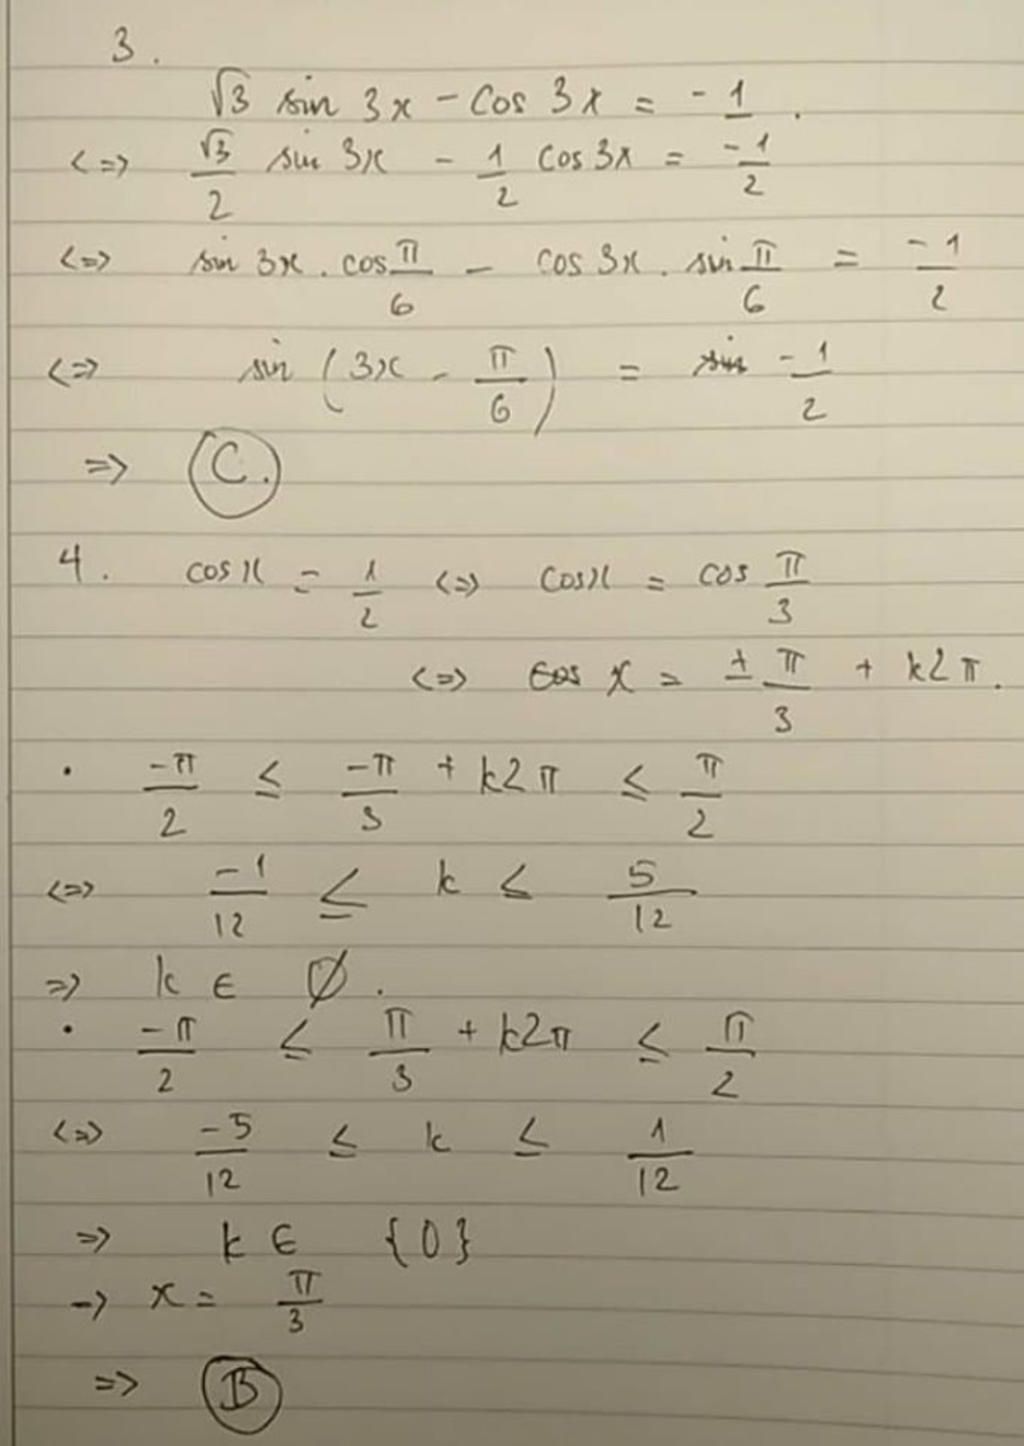 3.
√3 sin 3x - cos 3x = -1.
<=> √3/2 sin 3x - 1/2 cos 3x = -1/2
<=> sin 3x . cos π/6 - cos 3x . sin π/6 = -1/2
<=> sin (3x - π/6) = -1/2
=> C.
4. cos x = 1/2 <=> cos x = cos π/3
<=> x = ± π/3 + k2π.
• -π/2 ≤ -π/3 + k2π ≤ π/2
<=> -1/12 ≤ k ≤ 5/12
=> k ∈ Ø.
• -π/2 ≤ π/3 + k2π ≤ π/2
<=> -5/12 ≤ k ≤ 1/12
=> k ∈ {0}
-> x = π/3
=> B